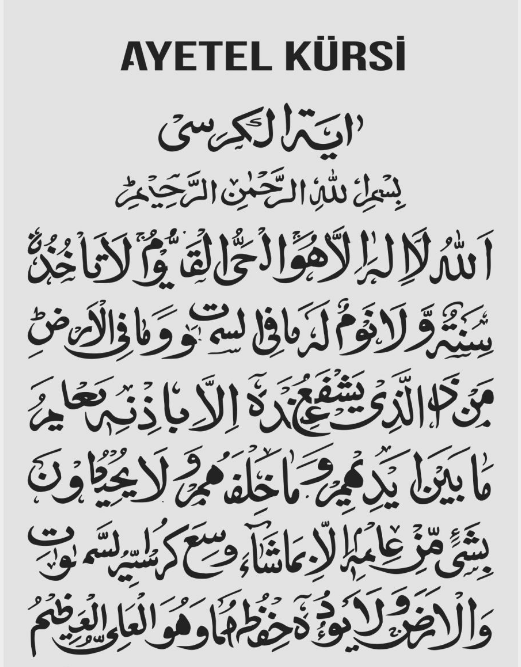 AYETEL KÜRSİ
اية الكرسى
بِسْمِ اللهِ الرَّحْمٰنِ الرَّحِيْمِ
اَللهُ لَا اِلٰهَ اِلَّا هُوَ الْحَىُّ الْقَيُّوْمُ لَا تَاْخُذُهٗ
سِنَةٌ وَّلَا نَوْمٌ لَهٗ مَا فِى السَّمٰوٰتِ وَمَا فِى الْاَرْضِ
مَنْ ذَا الَّذِىْ يَشْفَعُ عِنْدَهٗ اِلَّا بِاِذْنِهٖ يَعْلَمُ
مَا بَيْنَ اَيْدِيْهِمْ وَمَا خَلْفَهُمْ وَلَا يُحِيْطُوْنَ
بِشَىْءٍ مِّنْ عِلْمِهٖ اِلَّا بِمَا شَآءَ وَسِعَ كُرْسِيُّهُ السَّمٰوٰتِ
وَالْاَرْضَ وَلَا يَـُٔوْدُهٗ حِفْظُهُمَا وَهُوَ الْعَلِىُّ الْعَظِيْمُ